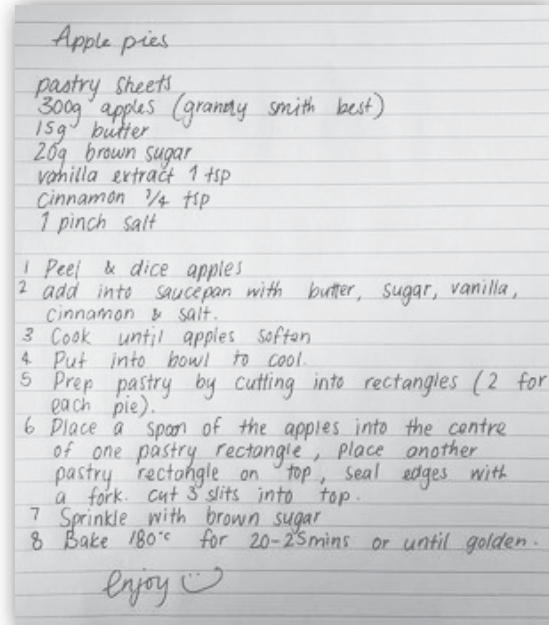 Apple pies
pastry sheets
300g apples (granny smith best)
15g butter
20g brown sugar
vanilla extract 1 tsp
cinnamon 3/4 tsp
1 pinch salt
1 Peel & dice apples
2 add into saucepan with butter, sugar, vanilla,
cinnamon & salt.
3 Cook until apples soften
4 Put into bowl to cool.
5 Prep pastry by cutting into rectangles (2 for
each pie).
6 Place a spoon of the apples into the centre
of one pastry rectangle, place another
pastry rectangle on top, seal edges with
a fork. cut 3 slits into top.
7 Sprinkle with brown sugar
8 Bake 180°c for 20-25mins or until golden.
enjoy